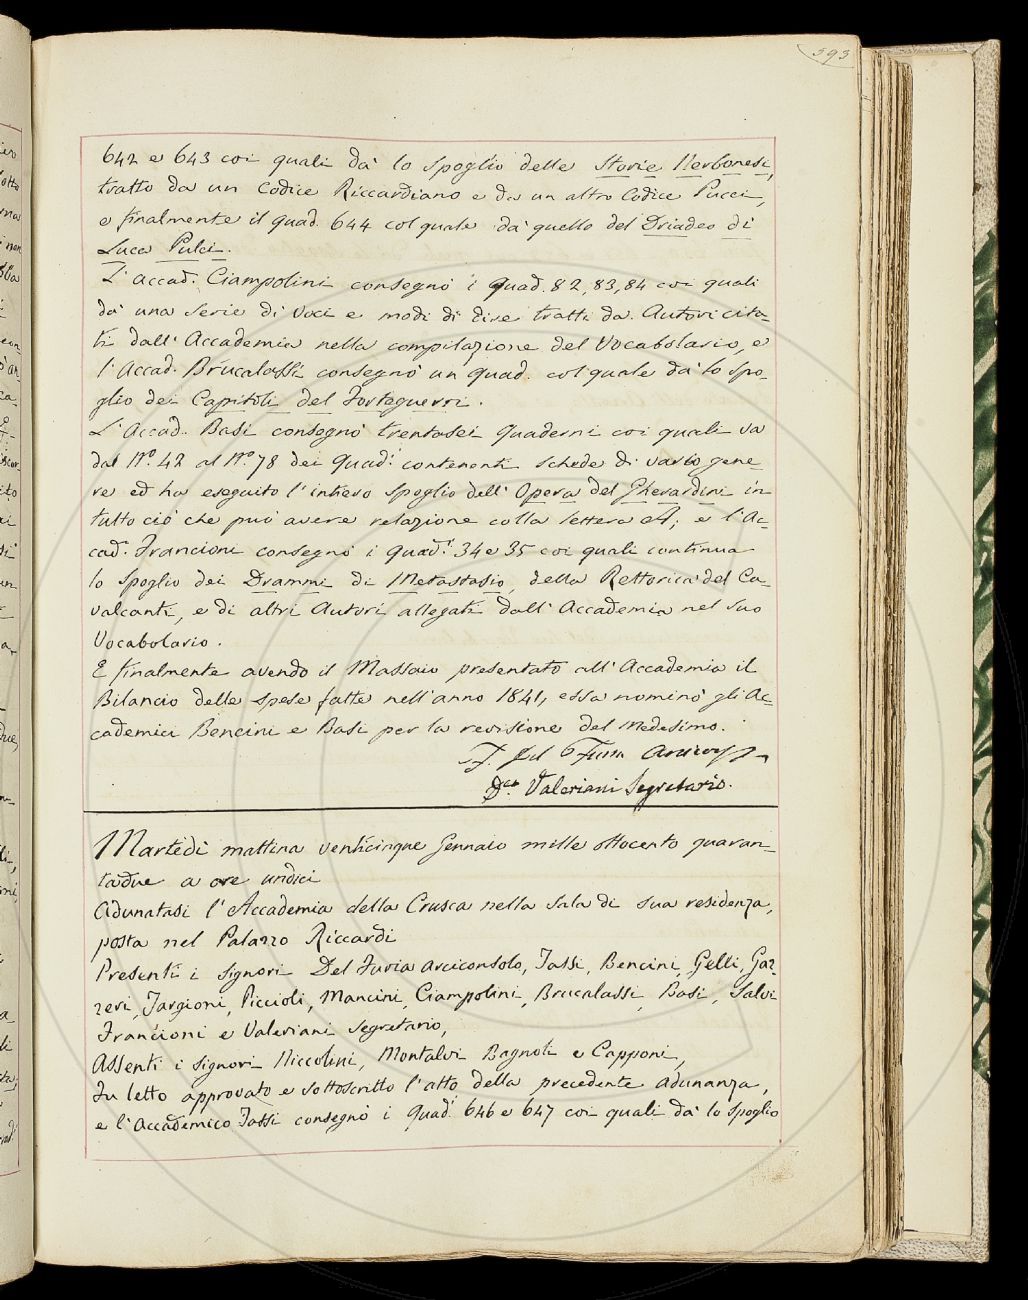 393
642 e 643 coi quali dà lo spoglio delle Storie Nerbonesi,
tratto da un Codice Riccardiano e da un altro Codice Pucci,
e finalmente il quad. 644 col quale dà quello del Driadeo di
Luca Pulci.
L'accad. Ciampolini consegnò i quad. 82, 83, 84 coi quali
dà una serie di voci e modi di dire tratti da Autori cita-
ti dall'Accademia nella compilazione del Vocabolario, e
l'Accad. Brucalassi consegnò un quad. col quale dà lo spo-
glio dei Capitoli del Forteguerri.
L'Accad. Basi consegnò trentasei Quaderni coi quali va
dal N.º 42 al N.º 78 dei Quad.i contenenti schede di vario gene-
re ed ha eseguito l'intiero spoglio dell'Opera del Gherardini in
tutto ciò che può avere relazione colla lettera A; e l'Ac-
cad. Francioni consegnò i quad.i 34 e 35 coi quali continua
lo spoglio dei Drammi di Metastasio, della Rettorica del Ca-
valcanti, e di altri Autori allegati dall'Accademia nel suo
Vocabolario.
E finalmente avendo il Massaio presentato all'Accademia il
Bilancio delle spese fatte nell'anno 1841, essa nominò gli Ac-
cademici Bencini e Basi per la revisione del medesimo.
F. Del Furia
Valeriani Segretario.
Martedì mattina venticinque Gennaio mille ottocento quaran-
tadue a ore undici
Adunatasi l'Accademia della Crusca nella sala di sua residenza,
posta nel Palazzo Riccardi
Presenti i Signori Del Furia arciconsolo, Tassi, Bencini, Gelli, Gaz-
zeri, Targioni, Piccioli, Mancini, Ciampolini, Brucalassi, Basi, Salvi
Francioni e Valeriani Segretario,
Assenti i Signori Niccolini, Montalvi Bagnoli e Capponi,
Fu letto approvato e sottoscritto l'atto della precedente adunanza,
e l'Accademico Tassi consegnò i Quad.i 646 e 647 coi quali dà lo spoglio